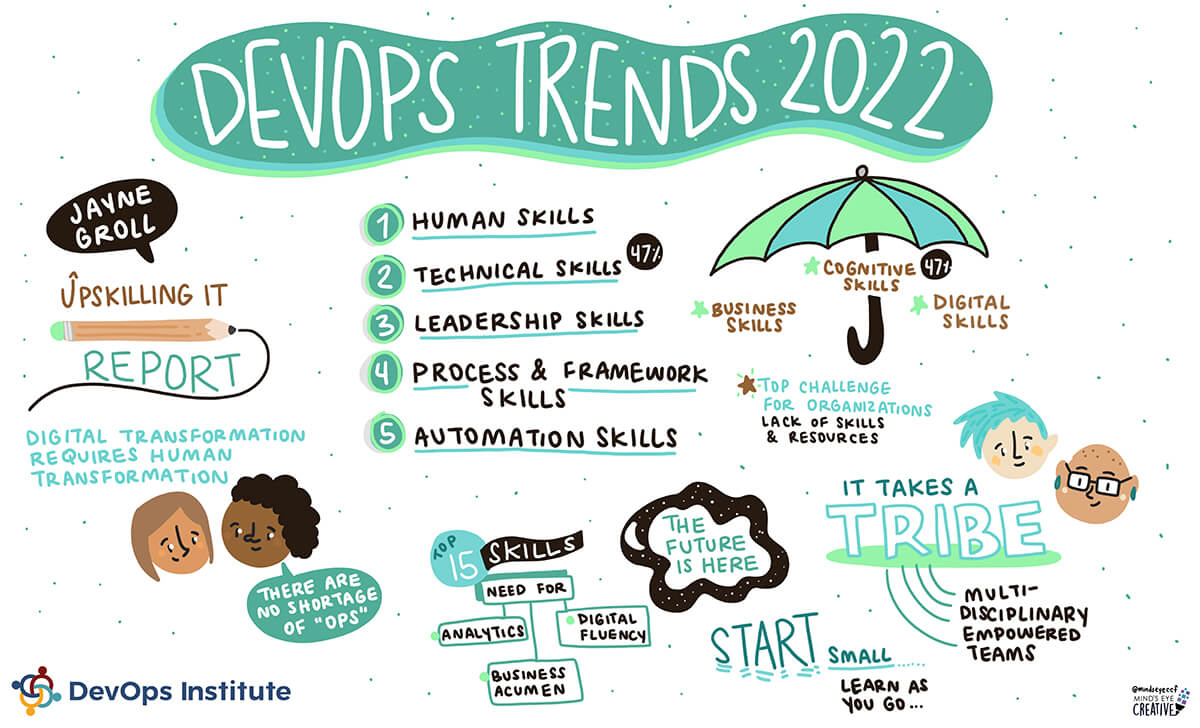 DEVOPS TRENDS 2022
JAYNE
GROLL
UPSKILLING IT
REPORT
DIGITAL TRANSFORMATION
REQUIRES HUMAN
TRANSFORMATION
THERE ARE
NO SHORTAGE
OF "OPS"
1 HUMAN SKILLS
2 TECHNICAL SKILLS 47%
3 LEADERSHIP SKILLS
4 PROCESS & FRAMEWORK
SKILLS
5 AUTOMATION SKILLS
COGNITIVE 47%
SKILLS
BUSINESS
SKILLS
DIGITAL
SKILLS
TOP CHALLENGE
FOR ORGANIZATIONS
LACK OF SKILLS
& RESOURCES
TOP
15 SKILLS
NEED FOR
ANALYTICS
DIGITAL
FLUENCY
BUSINESS
ACUMEN
THE
FUTURE
IS HERE
IT TAKES A
TRIBE
MULTI-
DISCIPLINARY
EMPOWERED
TEAMS
START SMALL......
LEARN AS
YOU GO...
DevOps Institute
@mindseyeccf
MIND'S EYE
CREATIVE